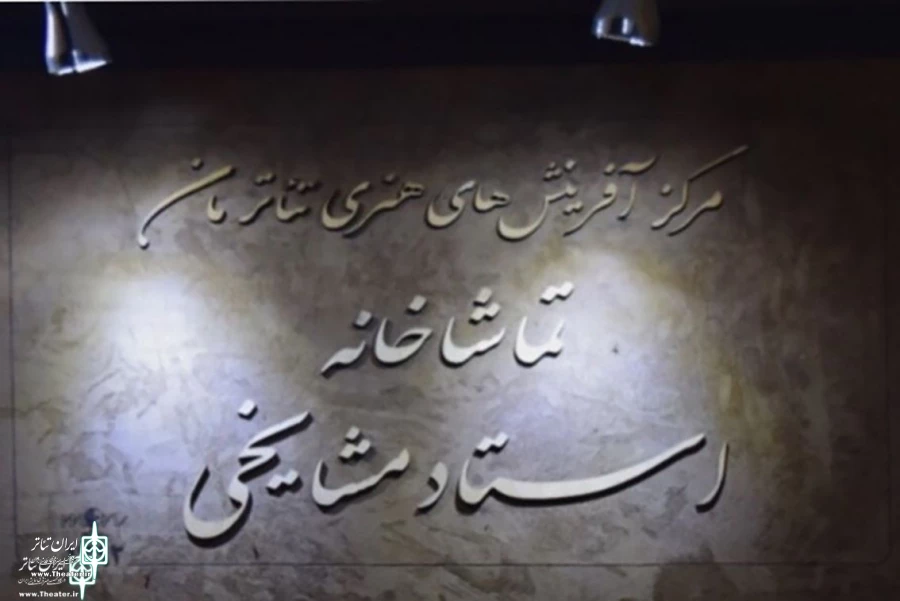 مرکز آفرینش های هنری تئاتر مان
تماشاخانه
استاد مشایخی
ایران تئاتر
ایران تئاتر
www.Theater.ir
www.Theater.ir